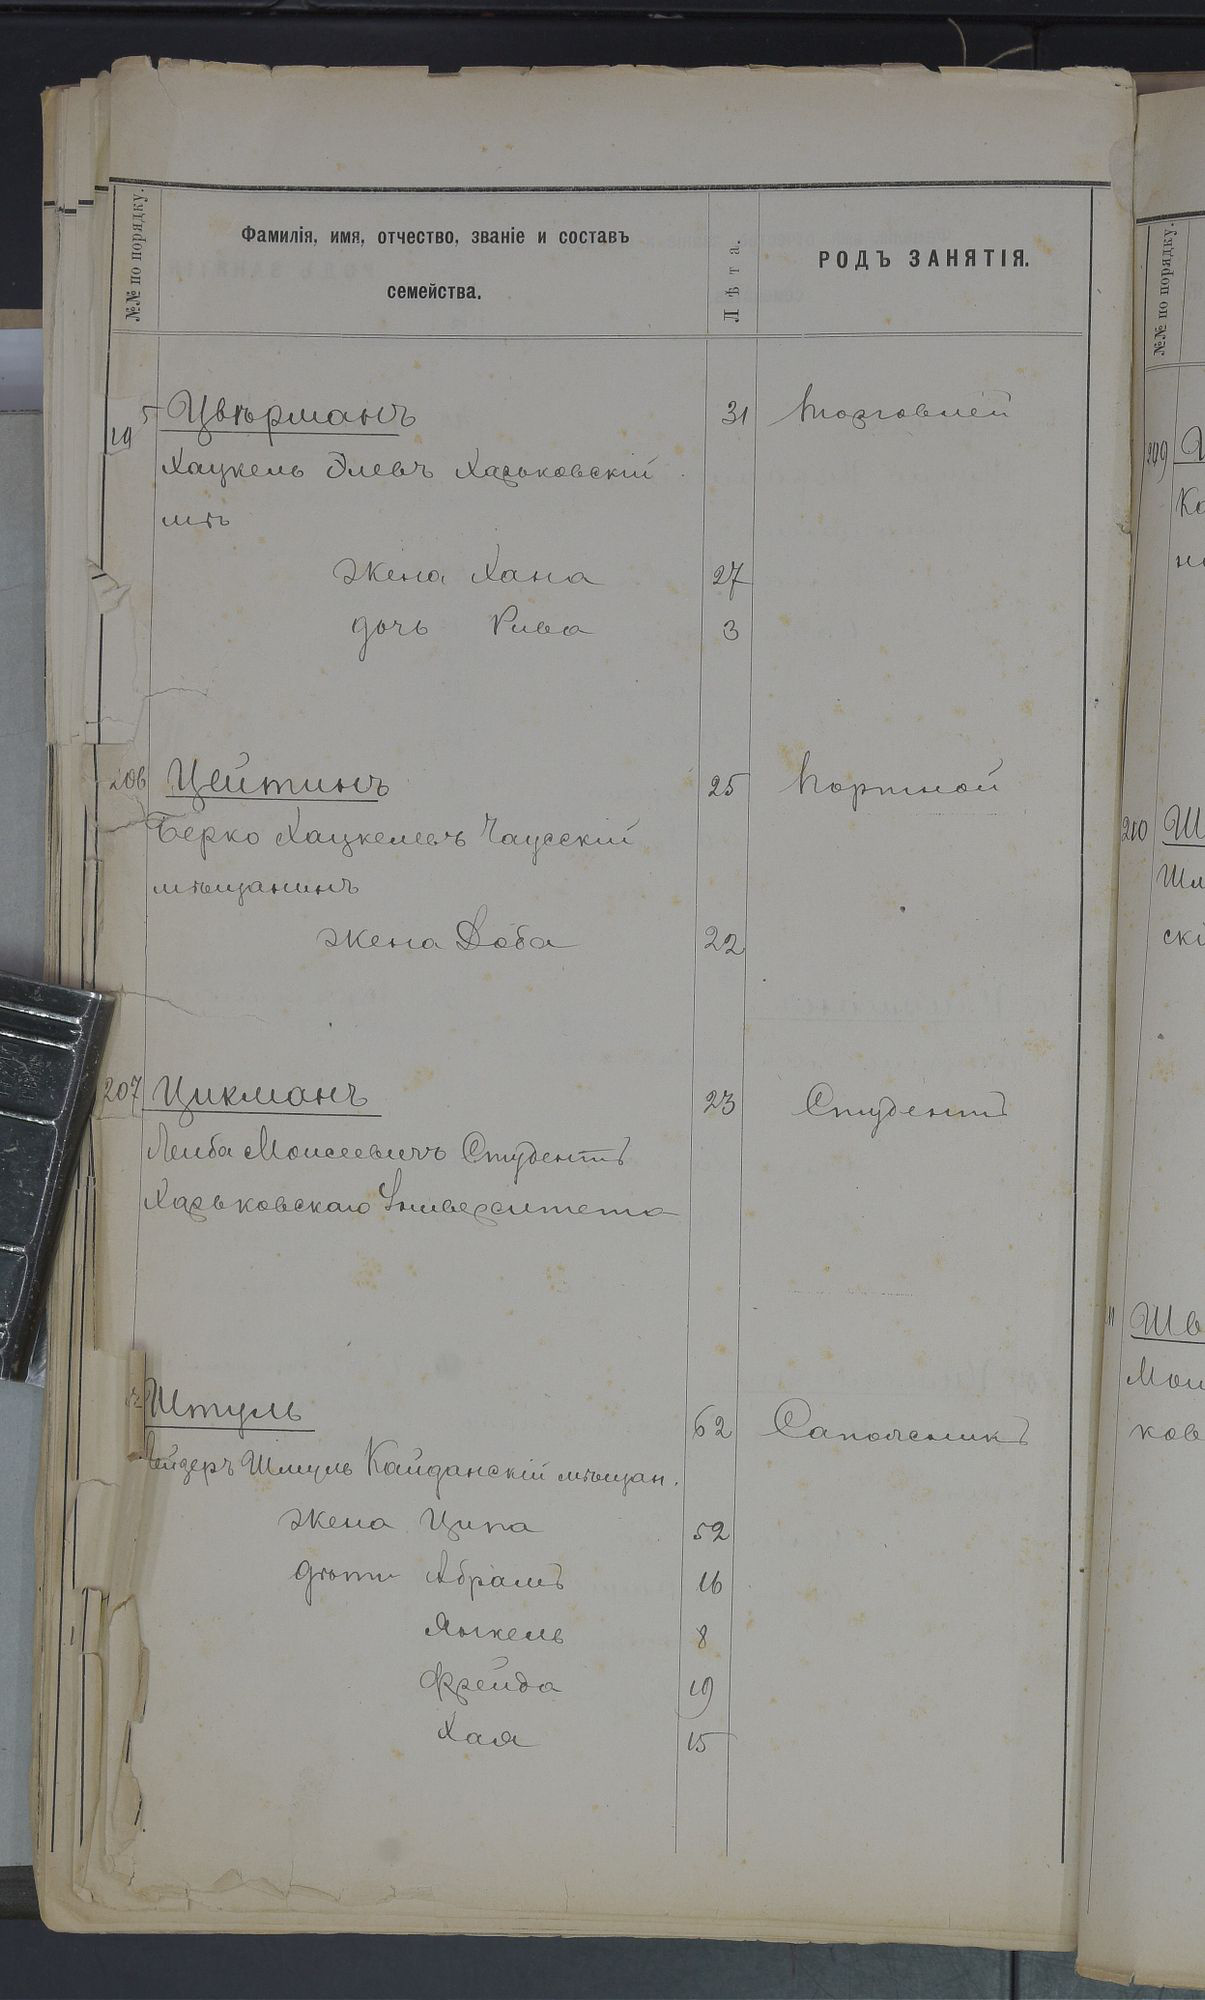 №№ по порядку.
Фамилія, имя, отчество, званіе и составъ
семейства.
Лѣта.
РОДЪ ЗАНЯТІЯ.
5 Цвѣрманъ 31 торговлей
Хацкель Элевъ Харьковскій
мѣ
жена Хана 27
дочь Рива 3
206 Цейтинъ 25 портной
Берко Хацкелевъ Чаусскій
мѣщанинъ
жена Доба 22
207 Цикманъ 23 Студентъ
Лейба Моисеевичъ Студентъ
Харьковскаго Университета
Штуль 62 Сапожникъ
Лейзеръ Шмуль Кайданскій мѣщан.
жена Ципа 52
дѣти Абрамъ 16
Янкель 8
Фрейда 19
Хая 15
№№ по порядку.
209
Ка
210 Ш
Шл
скі
11 Шв
Мои
ков